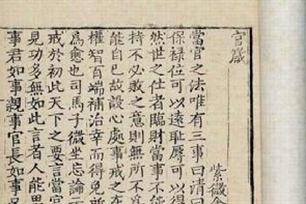 官箴
紫微
當官之法唯有三事曰清曰
保祿位可以遠恥辱可以得
然世之仕者臨財當事不能
持不必敗之意則無所不為
能自已故設心處事戒之在
權智百端補治幸而得免所
為愈也司馬子微坐忘論云
戒於初此天下之要言當官
見功多無如此言者人能思
事君如事親事官長如事